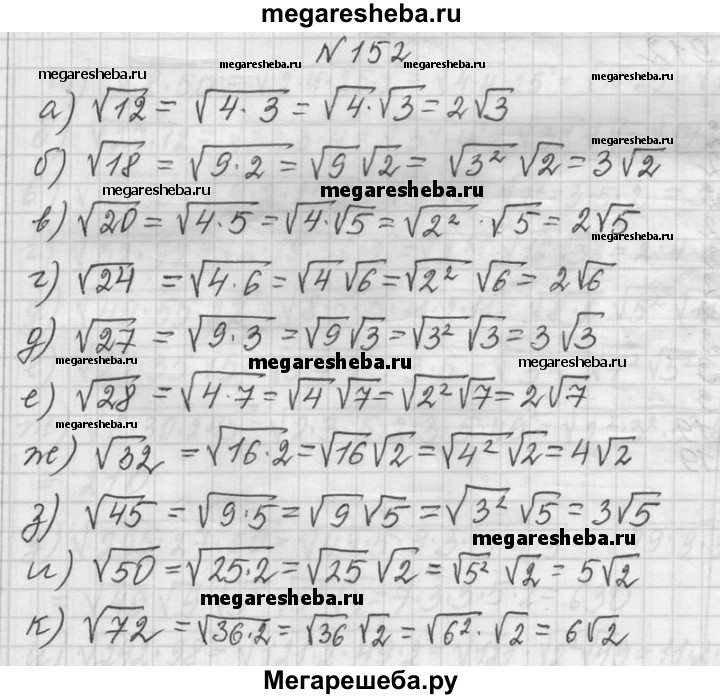 megaresheba.ru
№ 152
megaresheba.ru
megaresheba.ru
а) √12 = √4·3 = √4·√3 = 2√3
megaresheba.ru
б) √18 = √9·2 = √9 √2 = √3² √2 = 3√2
megaresheba.ru
megaresheba.ru
в) √20 = √4·5 = √4·√5 = √2² · √5 = 2√5
megaresheba.ru
г) √24 = √4·6 = √4 √6 = √2² √6 = 2√6
д) √27 = √9·3 = √9 √3 = √3² √3 = 3√3
megaresheba.ru
megaresheba.ru
megaresheba.ru
е) √28 = √4·7 = √4 √7 = √2² √7 = 2√7
megaresheba.ru
ж) √32 = √16·2 = √16 √2 = √4² √2 = 4√2
з) √45 = √9·5 = √9 √5 = √3² √5 = 3√5
megaresheba.ru
и) √50 = √25·2 = √25 √2 = √5² √2 = 5√2
megaresheba.ru
к) √72 = √36·2 = √36 √2 = √6² · √2 = 6√2
Мегарешеба.ру